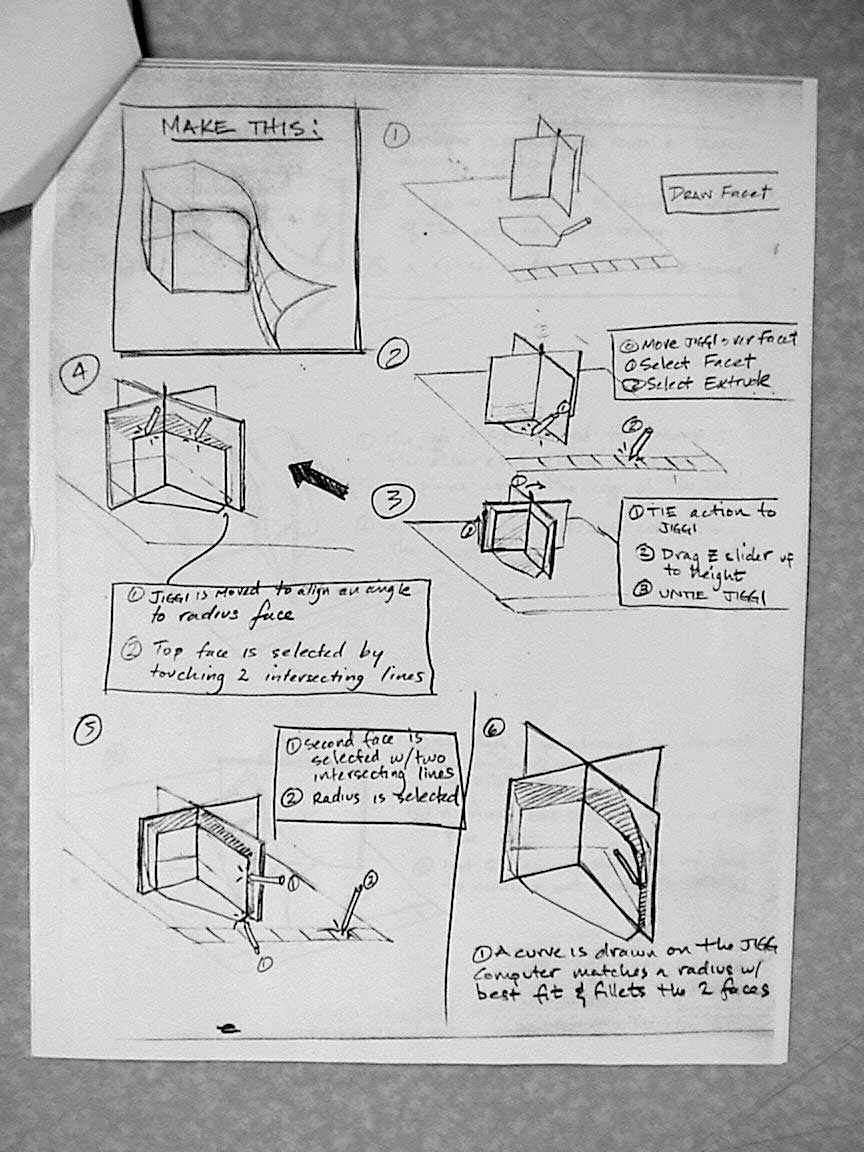 MAKE THIS:
①
DRAW Facet
②
⓪ Move JIGGI over facet
① Select Facet
② Select Extrude
①
②
③
① TIE action to
JIGGI
② Drag Z slider up
to height
③ UNTIE JIGGI
①
②
④
① JIGGI is moved to align an angle
to radius face
② Top face is selected by
touching 2 intersecting lines
⑤
① Second face is
selected w/two
intersecting lines
② Radius is selected
①
②
①
⑥
① A curve is drawn on the JIGG
Computer matches a radius w/
best fit & fillets the 2 faces